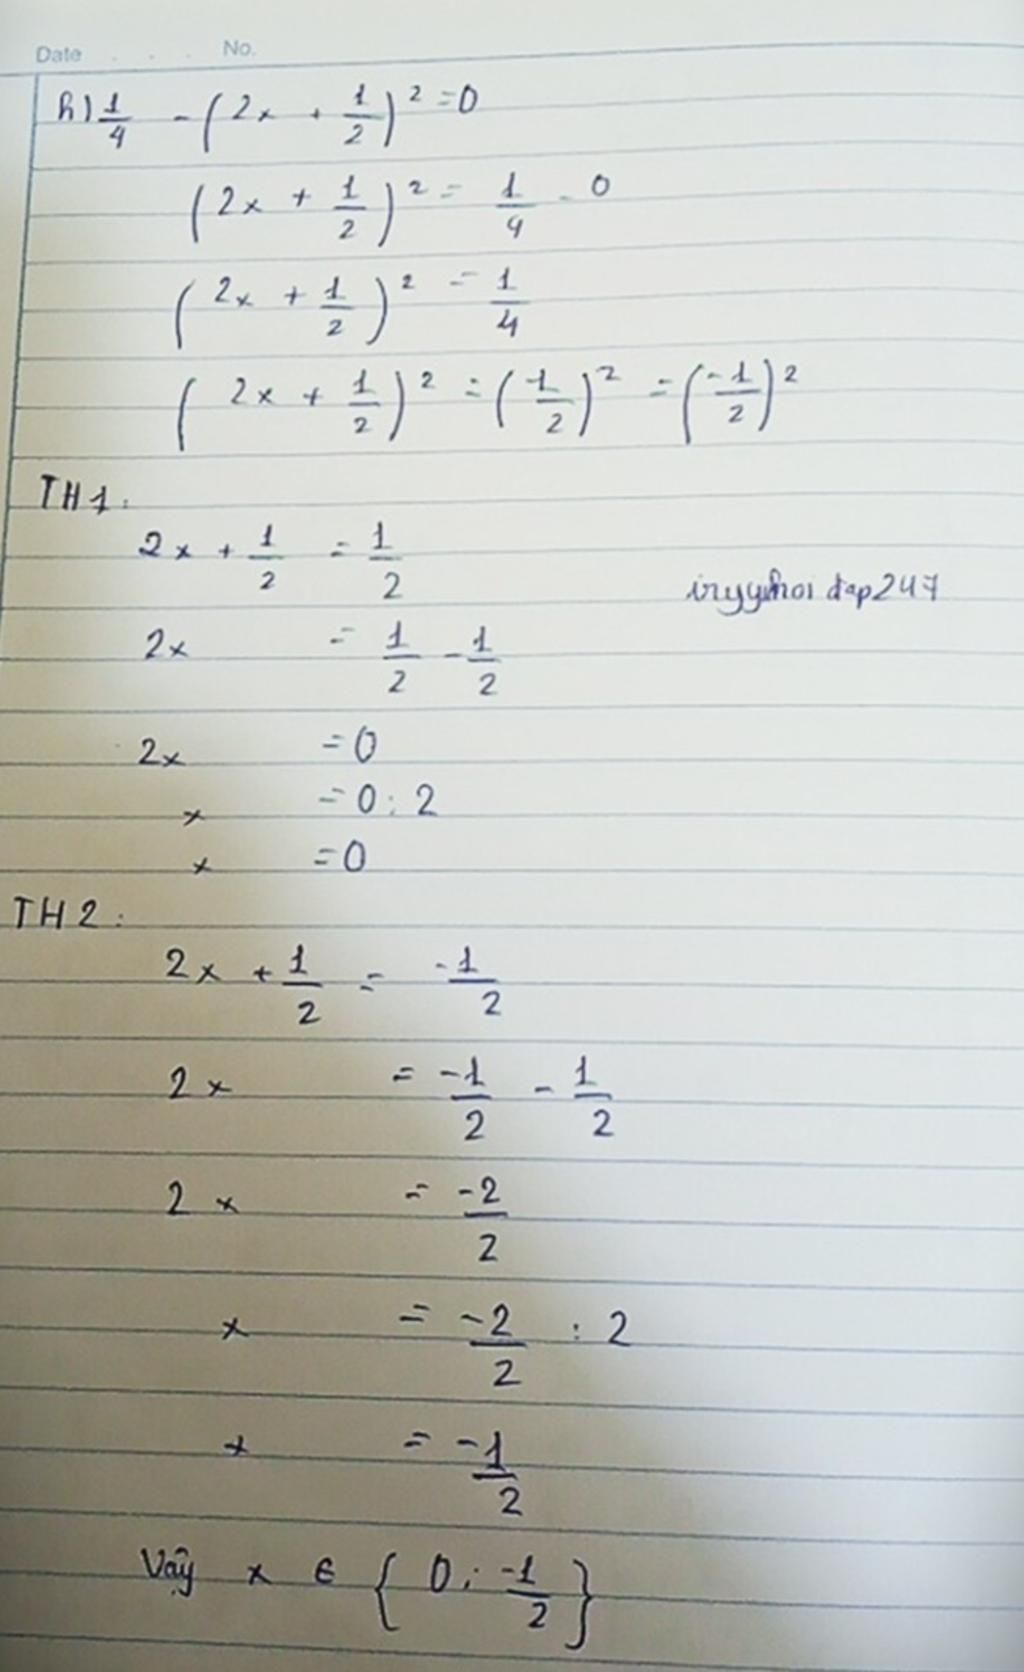 Date . . . No.
h) 1/4 - (2x + 1/2)² = 0
(2x + 1/2)² = 1/4 - 0
(2x + 1/2)² = 1/4
(2x + 1/2)² = (1/2)² = (-1/2)²
TH1:
2x + 1/2 = 1/2
đap247
2x = 1/2 - 1/2
2x = 0
x = 0 : 2
x = 0
TH2:
2x + 1/2 = -1/2
2x = -1/2 - 1/2
2x = -2/2
x = -2/2 : 2
x = -1/2
Vậy x ∈ {0; -1/2}